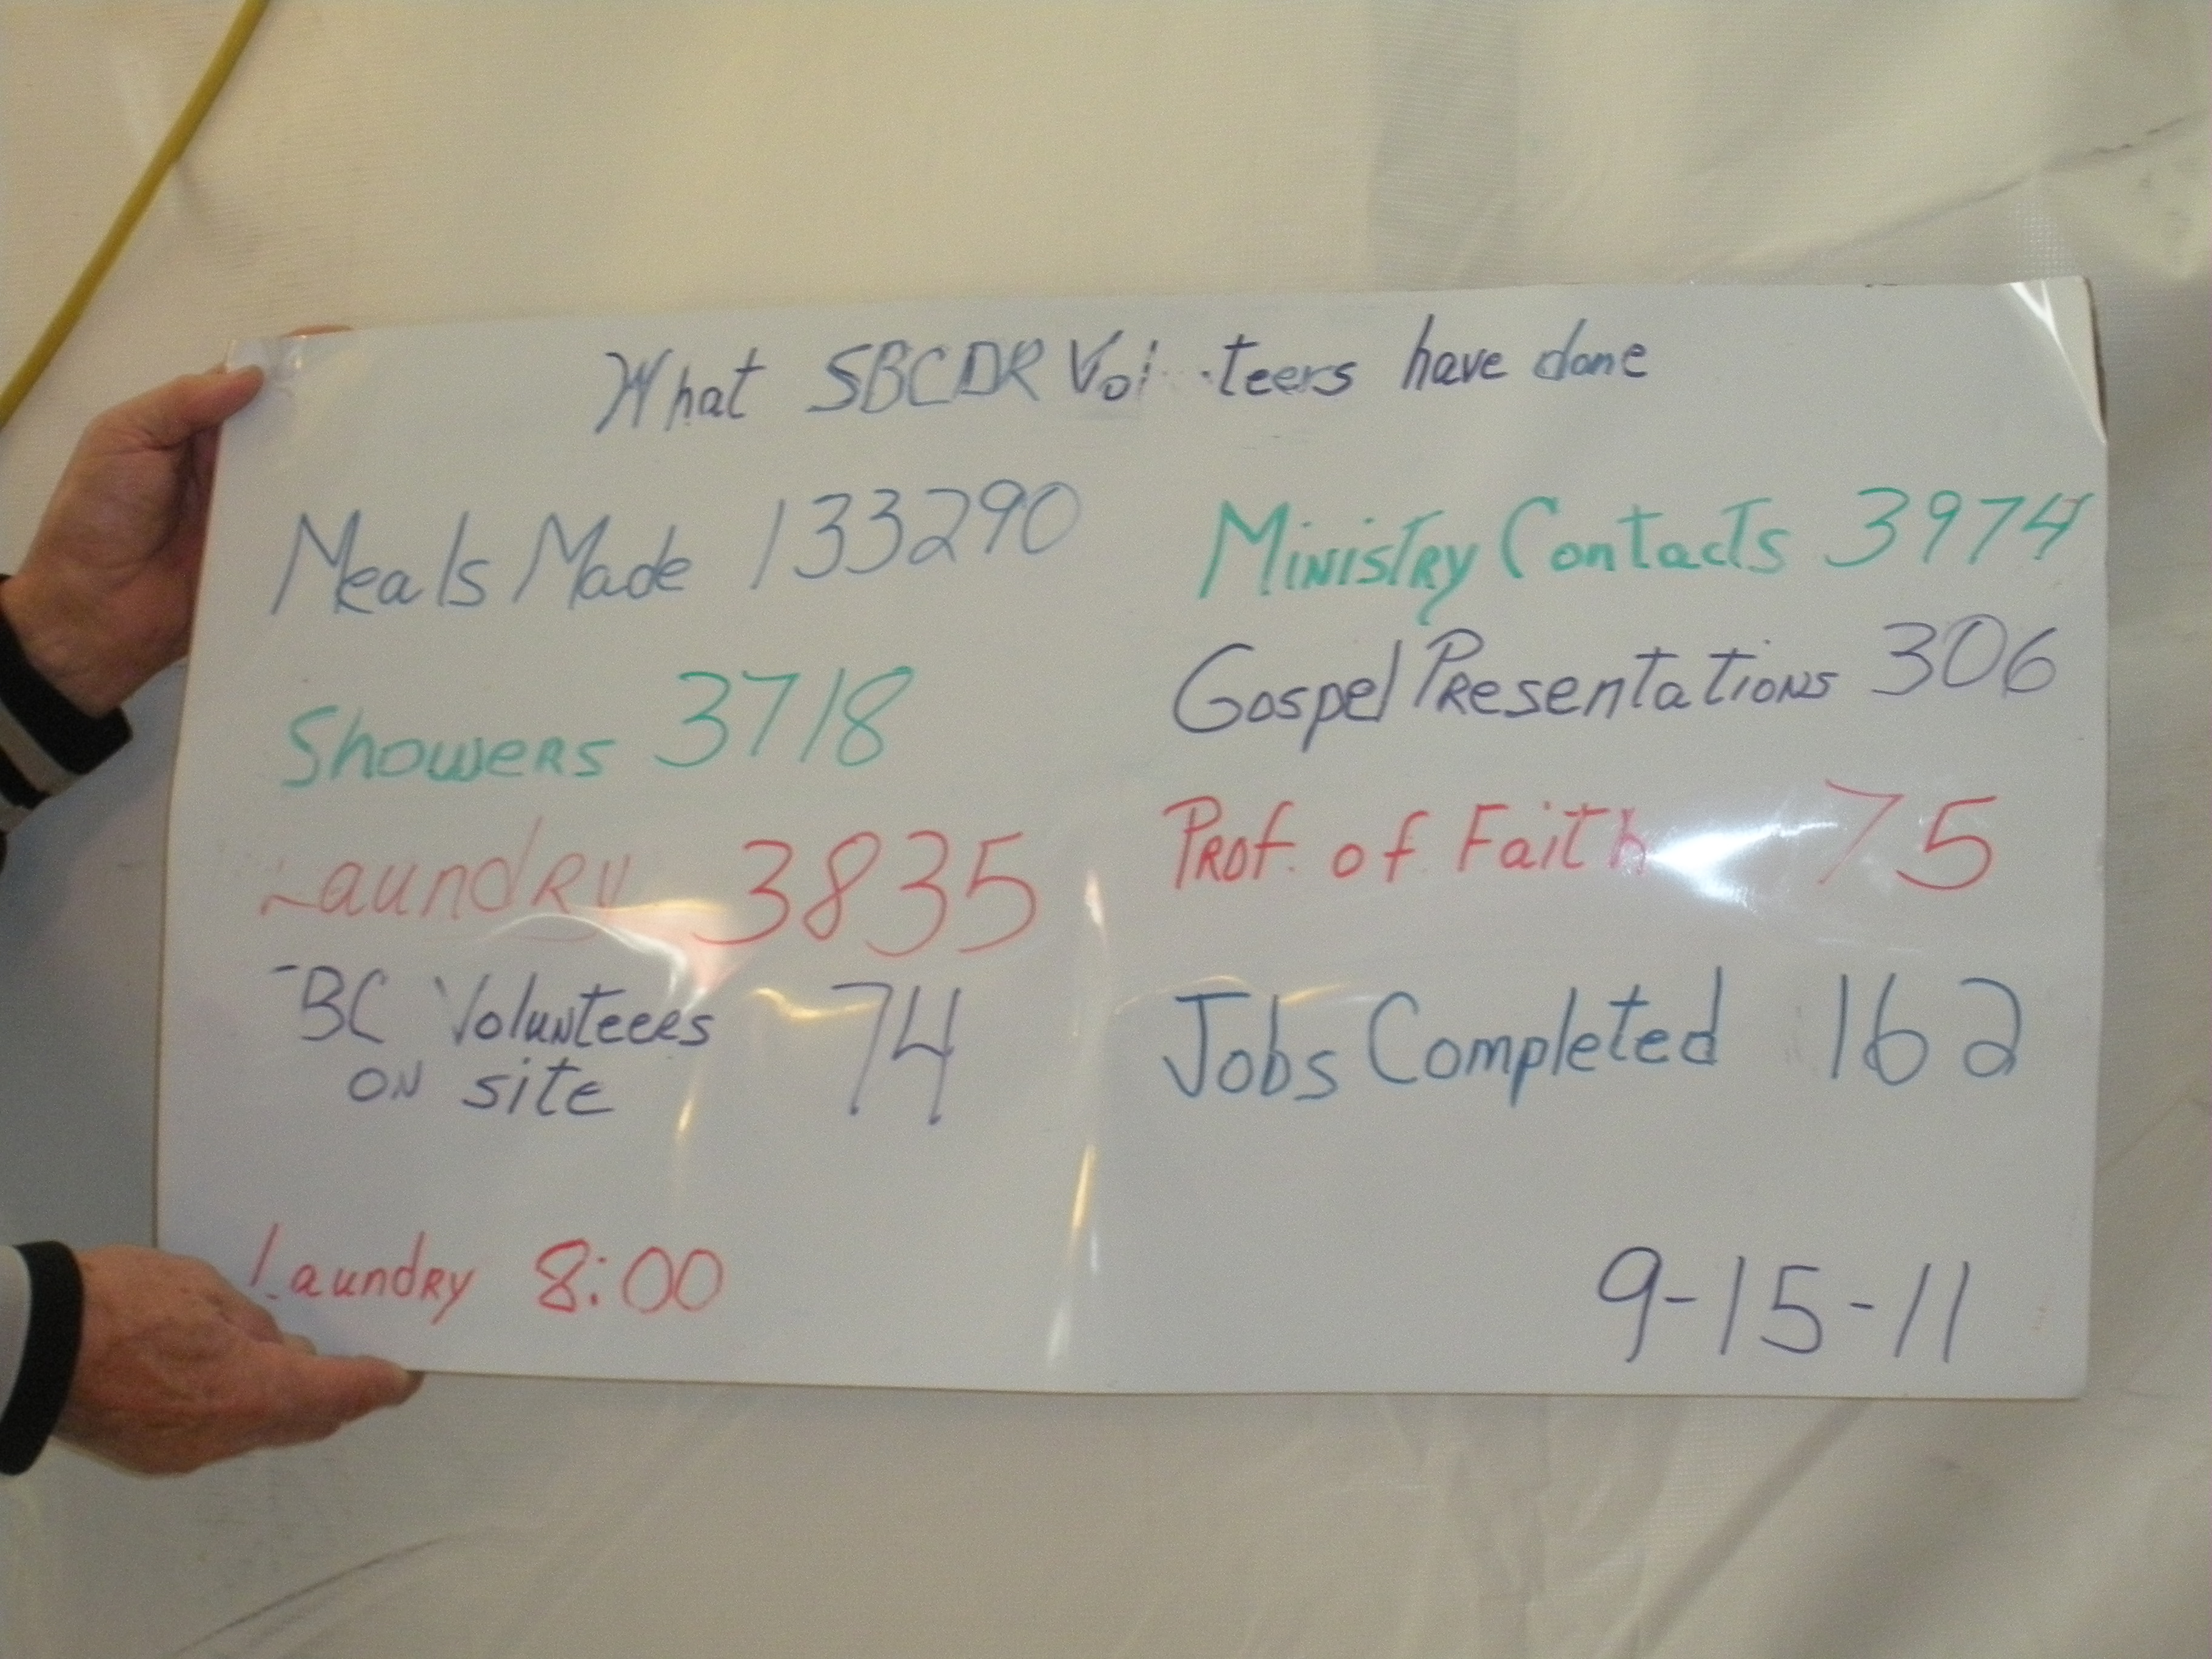 What SBCDR Vol teers have done
Meals Made 133290
Showers 3718
Laundry 3835
BC Volunteers 74
on site
Laundry 8:00
Ministry Contacts 3974
Gospel Presentations 306
Prof. of Faith 75
Jobs Completed 162
9-15-11